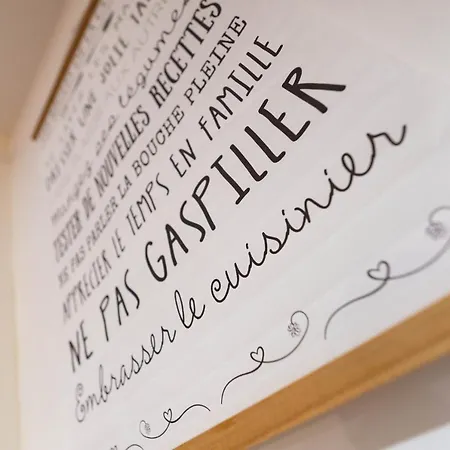 DRESSER UNE JOLIE TA
MANGER des légumes
TESTER DE NOUVELLES RECETTES
NE PAS PARLER LA BOUCHE PLEINE
APPRÉCIER LE TEMPS EN FAMILLE
NE PAS GASPILLER
Embrasser le cuisinier